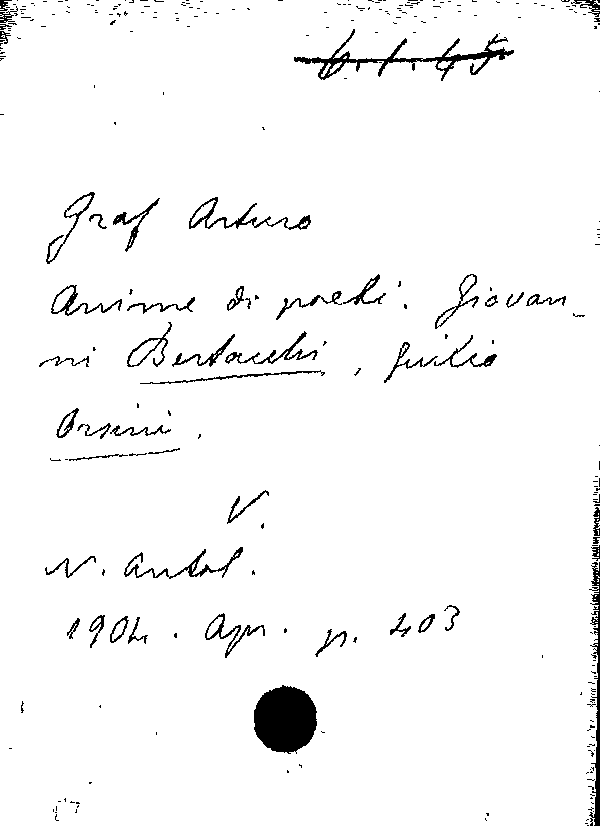 6.1.45
Graf Arturo
Anime di poeti. Giovan-
ni Bertacchi, Giulio
Orsini.
V.
N. Antol.
1904. Apr. p. 403